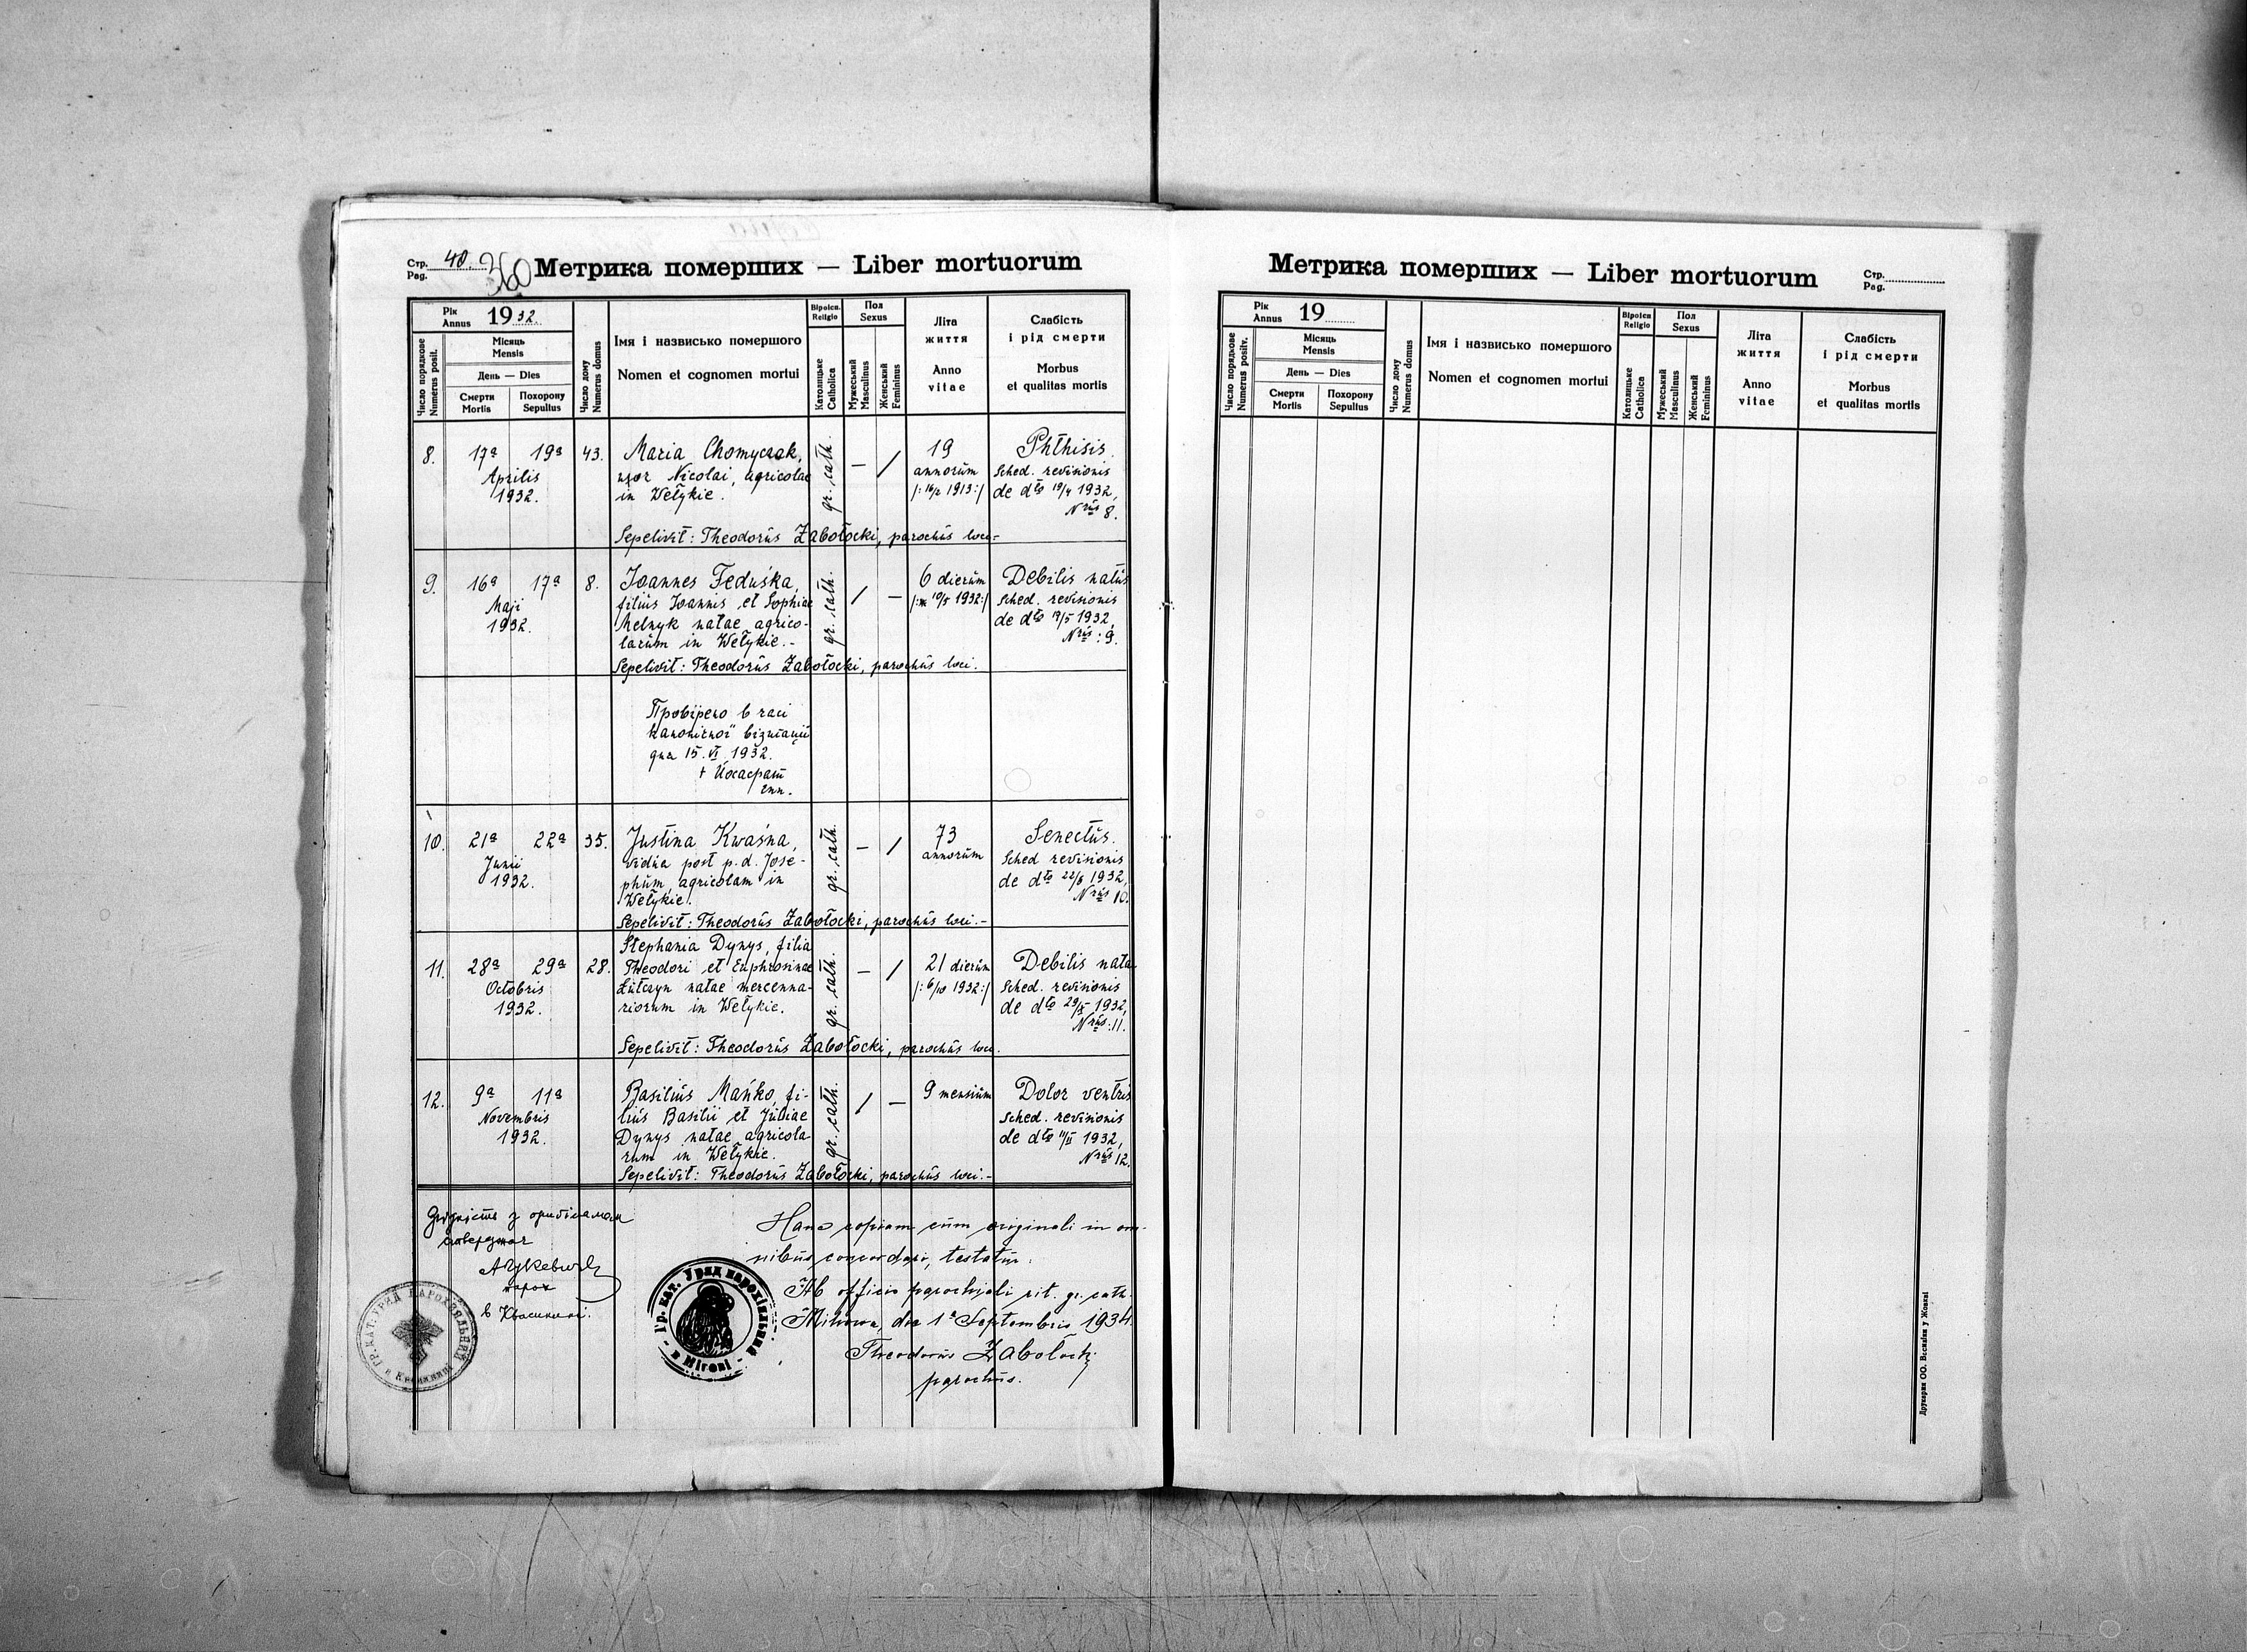 Стр. 40.
Pag.
Метрика померших — Liber mortuorum
Рік
Annus 1932.
Число порядкове
Numerus posit.
Місяць
Mensis
День — Dies
Смерти
Mortis
Похорону
Sepultus
Число дому
Numerus domus
Імя і назвисько помершого
Nomen et cognomen mortui
Віроісп.
Religio
Католицьке
Catholica
Пол
Sexus
Мужеський
Masculinus
Женський
Femininus
Літа
життя
Anno
vitae
Слабість
і рід смерти
Morbus
et qualitas mortis
8. 17ª 19ª 43. Maria Chomyczak, gr. cath. — / 19 Phthisis.
Aprilis uxor Nicolai, agricolae annorum Sched. revisionis
1932. in Wełykie. /: 16/2 1913 :/ de dto 19/4 1932,
Nrus 8.
Sepelivit: Theodorus Zabołocki, parochus loci.-
9. 16ª 17ª 8. Joannes Feduśka, gr. cath. / — 6 dierum Debilis natus
Maji filius Joannis et Sophiae /: 10/5 1932 :/ Sched. revisionis
1932. Melnyk natae agrico- de dto 19/5 1932,
larum in Wełykie.- Nrus : 9.
Sepelivit: Theodorus Zabołocki, parochus loci.
Провірено в часі
канонічної візитації
дня 15. VI. 1932.
+ Йосафат
єпп.
10. 21ª 22ª 35. Justina Kwaśna, gr. cath. — / 73 Senectus.
Junii vidua post p. d. Jose- annorum Sched revisionis
1932. phum, agricolam in de dto 22/6 1932,
Wełykie. Nrus 10.
Sepelivit: Theodorus Zabołocki, parochus loci.-
Stephania Dynys, filia
11. 28ª 29ª 28. Theodori et Euphrosinae gr. cath. — / 21 dierum Debilis nata
Octobris Łutczyn natae mercenna- /: 6/10 1932 :/ Sched. revisionis
1932. riorum in Wełykie. de dto 29/X 1932,
Nrus : 11.
Sepelivit: Theodorus Zabołocki, parochus loci.
12. 9ª 11ª Basilius Mańko, fi- gr. cath. / — 9 mensium Dolor ventris
Novembris lius Basilii et Juliae Sched. revisionis
1932. Dynys natae agricola- de dto 11/XI 1932,
rum in Wełykie. Nrus 12.
Sepelivit: Theodorus Zabołocki, parochus loci.-
Згідність з оригіналом
стверджає
парох
в Квасинині.
ГР. КАТ. УРЯД ПАРОХІЯЛЬНИЙ
Гр. кат. Уряд парохіяльний
Hanc copiam cum originali in om-
nibus concordari, testatur.
Ab officio parochiali rit. gr. cath.
Mihowa, die 1ª Septembris 1934.
Theodorus Zabołocki
parochus.
Метрика померших — Liber mortuorum
Стр.
Pag.
Рік
Annus 19
Число порядкове
Numerus positv.
Місяць
Mensis
День — Dies
Смерти
Mortis
Похорону
Sepultus
Число дому
Numerus domus
Імя і назвисько помершого
Nomen et cognomen mortui
Віроісп
Religio
Католицьке
Catholica
Пол
Sexus
Мужеський
Masculinus
Женський
Femininus
Літа
життя
Anno
vitae
Слабість
і рід смерти
Morbus
et qualitas mortis
Друкарня ОО. Василіян у Жовкві